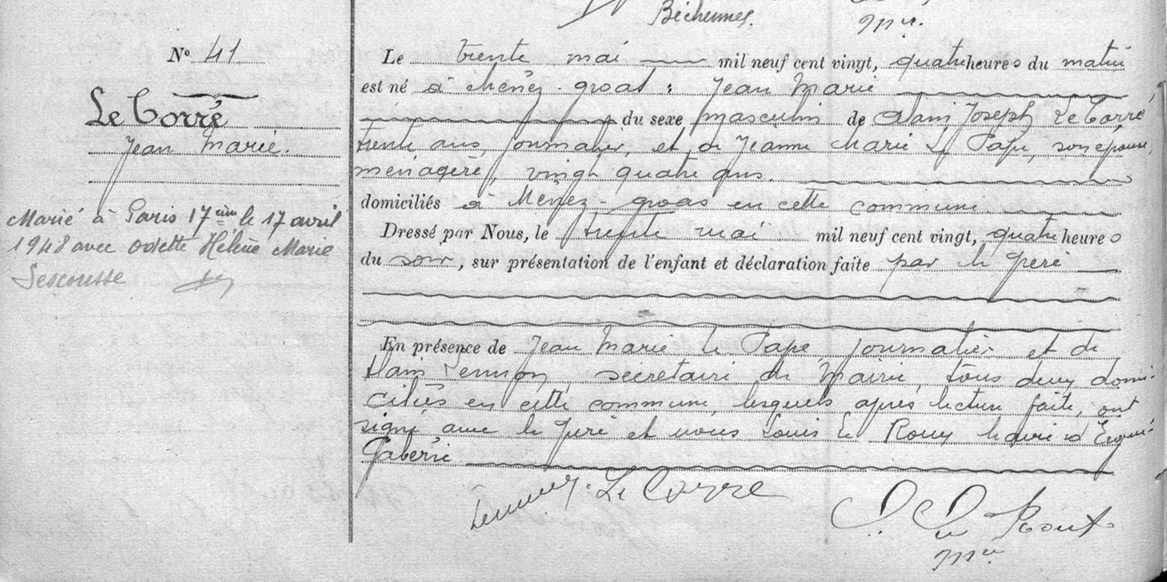 Béchennec.
Nº 41
Le Corre
Jean Marie.
Marié à Paris 17ème le 17 avril
1948 avec Odette Hélène Marie
Lescousse
Le trente mai mil neuf cent vingt, quatre heures du matin
est né à Ménez-groas : Jean Marie
du sexe masculin de Alain Joseph Le Corre
trente ans, journalier, et de Jeanne Marie Le Pape, son épouse,
ménagère, vingt quatre ans.
domiciliés à Ménez-groas en cette commune.
Dressé par Nous, le trente mai mil neuf cent vingt, quatre heures
du soir, sur présentation de l'enfant et déclaration faite par le père
En présence de Jean Marie Le Pape, journalier et de
Alain secrétaire de Mairie, tous deux domi-
ciliés en cette commune, lesquels après lecture faite, ont
signé avec le père et nous Louis Le Roux Maire d'Ergué-
Gabéric
Le Corre
Le Roux